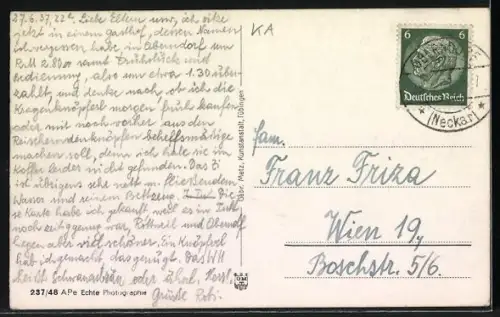 27.6.37, 22h. Liebe Eltern usw, ich sitze
jetzt in einem Gasthof, dessen Namen
ich vergessen habe, in Oberndorf um
RM 2.80 samt Frühstück und
Bedienung, also um etwa 1.30 über-
zahlt, und denke nach, ob ich die
knöpferl morgen früh kaufen
oder mir noch vorher aus den
machen soll, denn ich habe sie im
Koffer leider nicht gefunden. Das Zi
ist übrigens sehr nett m. fließendem
Wasser und reinem Bettzeug. Die-
se Karte habe ich gekauft weil es in
noch zeitig genug war, Rottweil und Oberndf
liegen aber viel schöner. Ein Knöpferl
hab ich gemacht, das genügt. Das WH
heißt oder ähnl. Herzl.
Grüße
237/48 APe Echte Photographie
Gebr. Metz, Kunstanstalt, Tübingen
KA
6 6
Deutsches Reich
(Neckar)
Fam.
Franz Friza
Wien 19,
Boschstr. 5/6.